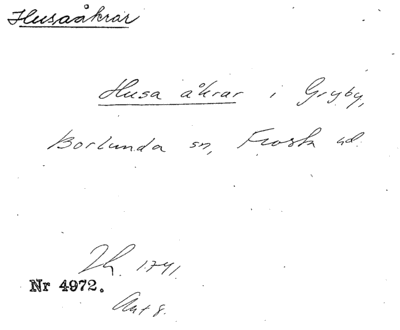 Husaåkrar
Husa åkrar i Gryby,
Borlunda sn, Frosta hd.
Lh. 1741.
Nr 4972.
Akt 8.